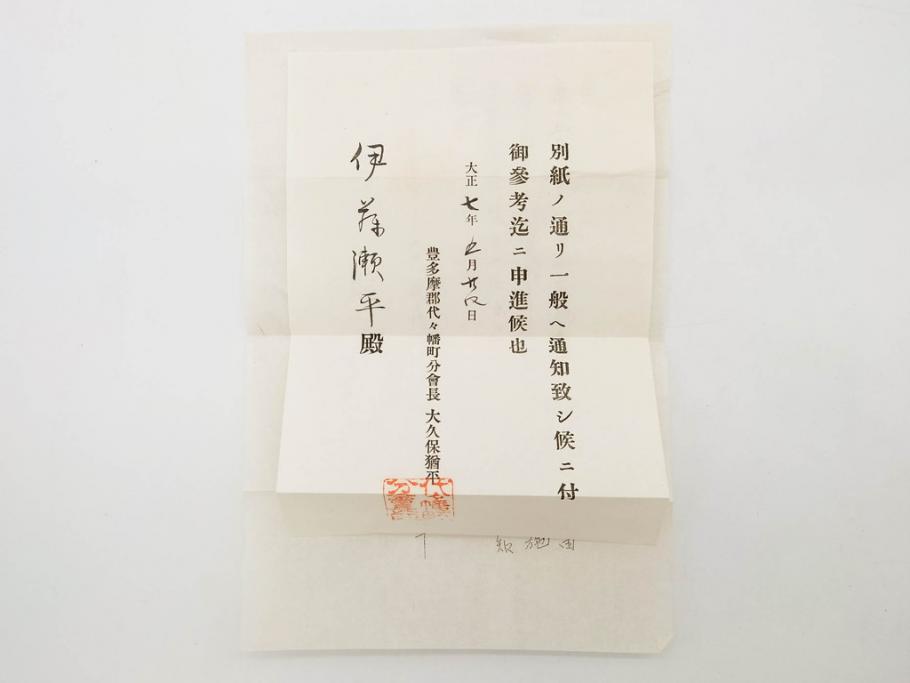 別紙ノ通リ一般ヘ通知致シ候ニ付
御參考迄ニ申進候也
大正七年五月廿八日
豊多摩郡代々幡町分會長 大久保猶平
伊藤瀬平殿
代々幡
分會